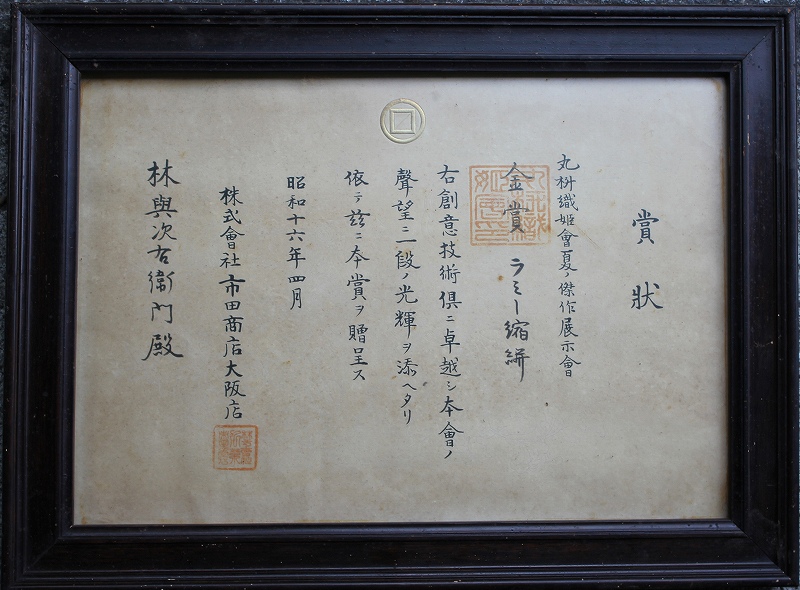 賞狀
丸枡織姫會夏ノ傑作展示會
金賞 ラミー縮絣
右創意技術倶ニ卓越シ本會ノ
聲望ニ一段ノ光輝ヲ添ヘタリ
依テ茲ニ本賞ヲ贈呈ス
昭和十六年四月
株式會社市田商店大阪店
林與次右衛門殿